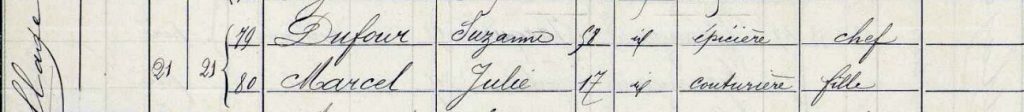 79 Dufour Suzanne 58 id épicière chef
21 21 80 Marcel Julie 17 id couturière fille